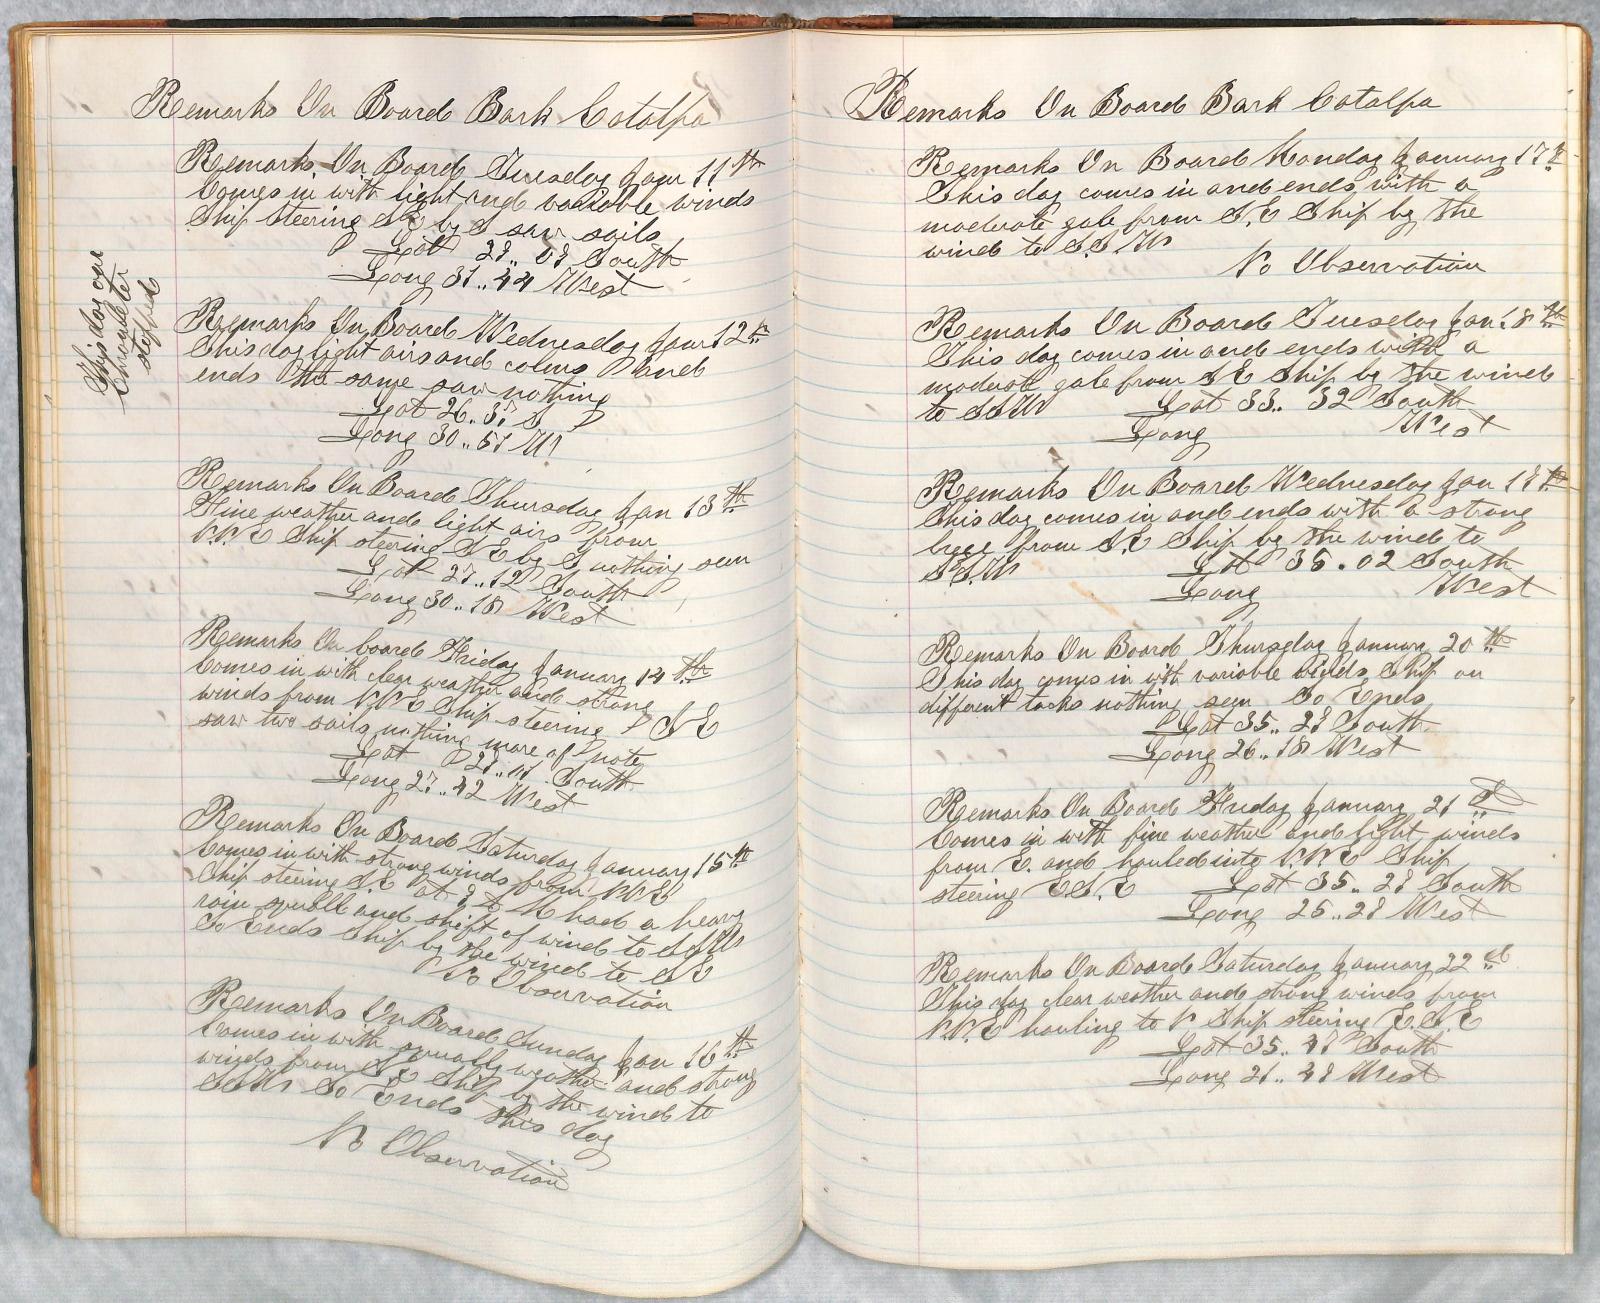 Remarks On Board Bark Catalpa
Remarks On Board Tuesday Jan 11th
Comes in with light and variable winds
Ship steering S E by S saw sails
Lat 23.. 03 South
Long 31.. 44 West
This day our
Cronometer
stopped
Remarks On Board Wednesday Jan 12th
This day light airs and calms and
ends the same saw nothing
Lat 26.. 37 S
Long 30.. 57 W
Remarks On Board Thursday Jan 13th
Fine weather and light airs from
N.N.E Ship steering S E by S nothing seen
Lat 27.. 12 South
Long 30.. 18 West
Remarks On board Friday January 14th
Comes in with clear weather and strong
winds from N.N.E Ship steering S E
saw two sails nothing more of note
Lat South
Long 27.. 42 West
Remarks On Board Saturday January 15th
Comes in with strong winds from N.N.E
Ship steering S.E at had a heavy
rain squall and shift of wind to S.S.W
So Ends Ship by the wind to S E
No Observation
Remarks On Board Sunday Jan 16th
Comes in with squally weather and strong
winds from S.E Ship by the wind to
S.S.W So Ends this day
No Observation
Remarks On Board Bark Catalpa
Remarks On Board Monday January 17th
This day comes in and ends with a
moderate gale from S.E Ship by the
wind to S.S.W
No Observation
Remarks On Board Tuesday Jan 18th
This day comes in and ends with a
moderate gale from S E Ship by the wind
to S S W Lat 33.. 32 South
Long West
Remarks On Board Wednesday Jan 19th
This day comes in and ends with a strong
breze from S.E Ship by the wind to
S.S.W Lat 35.02 South
Long West
Remarks On Board Thursday January 20th
This day comes in with variable winds Ship on
different tacks nothing seen So Ends
Lat 35.. 29 South
Long 26.. 18 West
Remarks On Board Friday January 21st
Comes in with fine weather and light winds
from E. and hauled into N.N.E Ship
steering E S.E Lat 35.. 29 South
Long 25.. 29 West
Remarks On Board Saturday January 22nd
This day clear weather and strong winds from
N.N.E hauling to N Ship steering E.S.E
Lat 35.. 47 South
Long 21.. 49 West